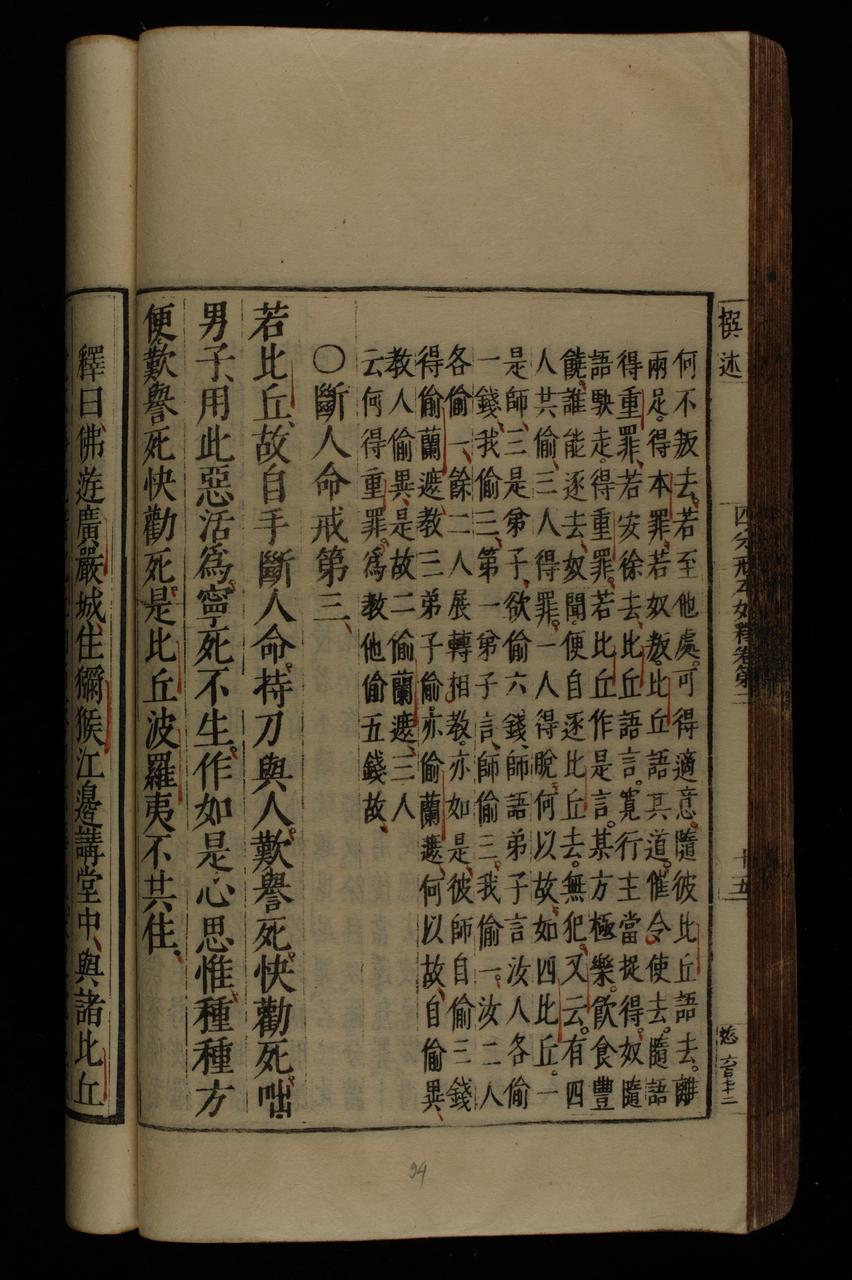 撰述
四分戒本如釋卷第二
十五
何不叛去、若至他處。可得適意。隨彼比丘語去。離
兩足。得本罪。若奴叛。比丘語其道。催令使去。隨語
得重罪、若安徐去、比丘語言。寬行主當捉得。奴隨
語駛走。得重罪。若比丘作是言。某方極樂。飲食豐
饒。誰能逐去、奴聞。便自逐比丘去。無犯、又云。有四
人共偷、三人得罪。一人得脫、何以故、如四比丘。一
是師、三是弟子、欲偷六錢、師語弟子言汝人各偷
一錢、我偷三、第一弟子言、師偷三。我偷一。汝二人
各偷一、餘二人展轉相教。亦如是、彼師自偷三錢
得偷蘭遮、教三弟子偷。亦偷蘭遮、何以故、自偷異、
教人偷異、是故二偷蘭遮、三人
云何得重罪。為教他偷五錢故、
○斷人命戒第三、
若比丘、故自手斷人命。持刀與人。歎譽死。快勸死。咄
男子、用此惡活為。寧死不生。作如是心思惟、種種方
便、歎譽死快勸死。是比丘波羅夷不共住、
釋曰、佛遊廣嚴城住獼猴江邊講堂中、與諸比丘
94